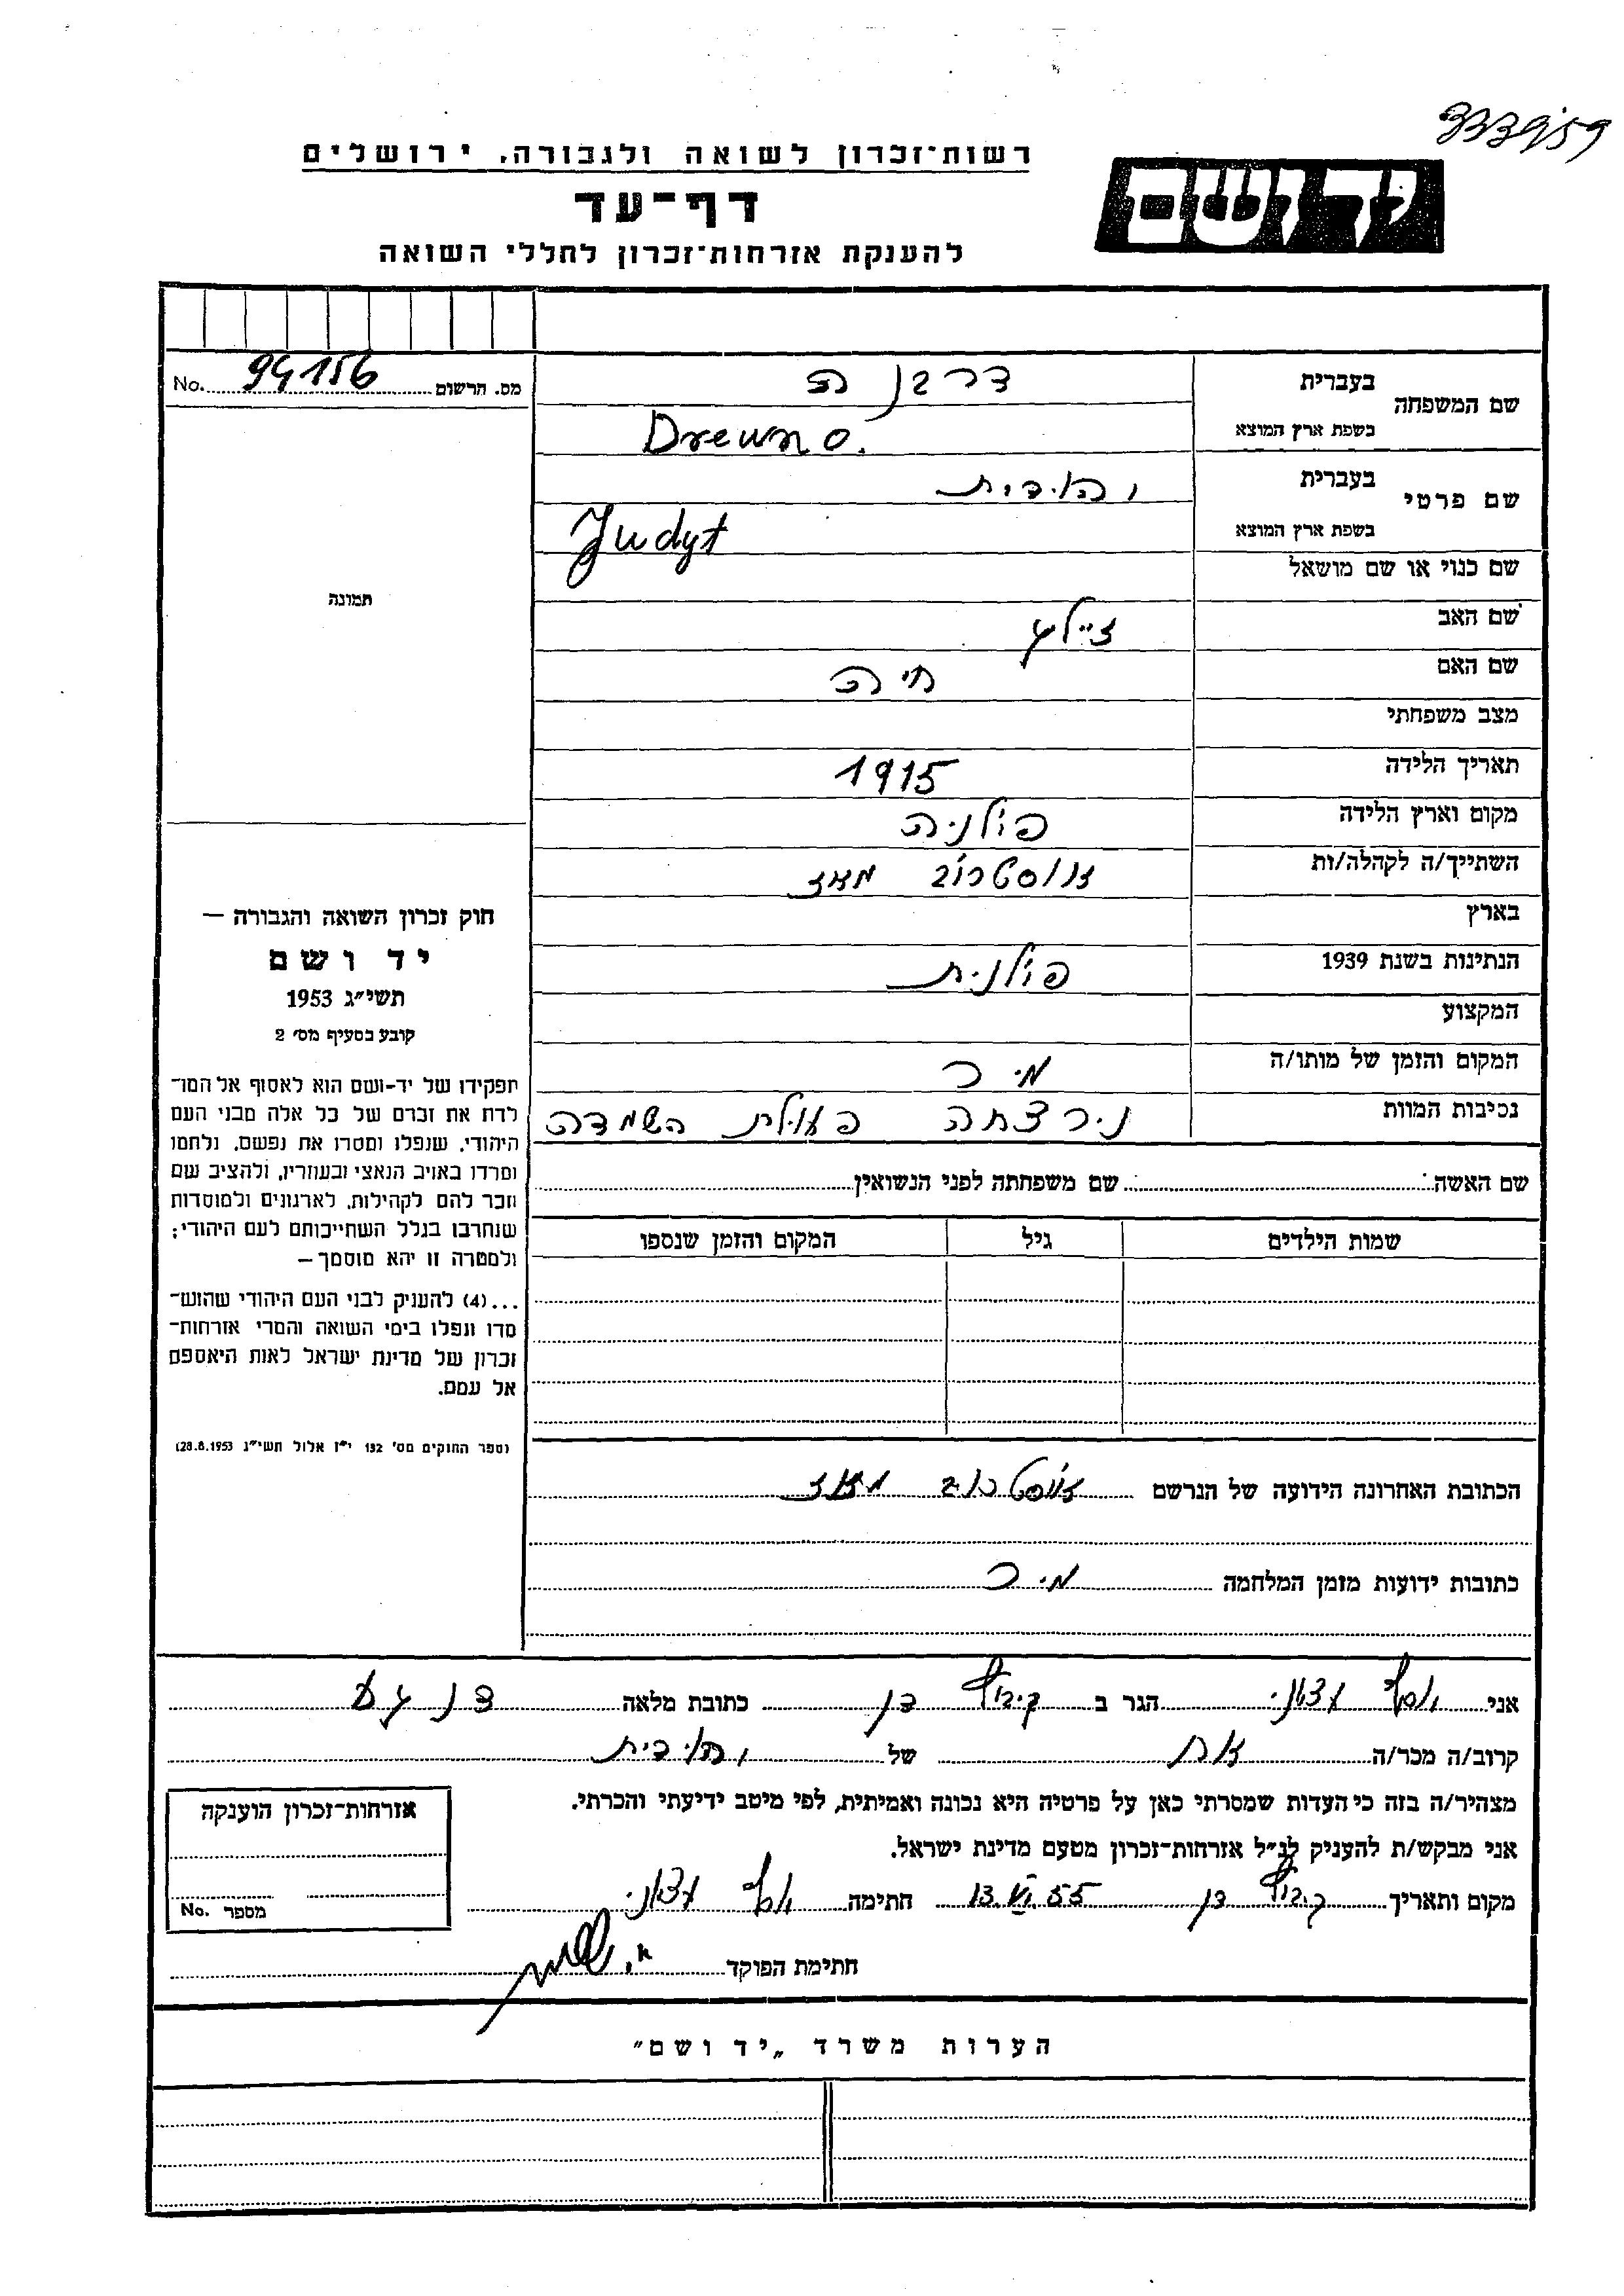 רשות־זכרון לשואה ולגבורה, ירושלים
ידושם
דף־עד
להענקת אזרחות־זכרון לחללי השואה
מס. הרשום 94156 No.
שם המשפחה
בעברית
בשפת ארץ המוצא Drewno.
שם פרטי
בעברית יהודית
בשפת ארץ המוצא Judyt
שם כנוי או שם מושאל
שם האב
שם האם חיה
מצב משפחתי
תאריך הלידה 1915
מקום וארץ הלידה פולניה
השתייך/ה לקהלה/ות אוסטרוב מאז
בארץ
הנתינות בשנת 1939 פולנית
המקצוע
המקום והזמן של מותו/ה
נסיבות המוות נירצחה פעולת השמדה
שם האשה שם משפחתה לפני הנשואין
שמות הילדים גיל המקום והזמן שנספו
הכתובת האחרונה הידועה של הנרשם אוסטרוב מאז
כתובות ידועות מזמן המלחמה
תמונה
חוק זכרון השואה והגבורה —
יד ושם
תשי״ג 1953
קובע בסעיף מס׳ 2
תפקידו של יד-ושם הוא לאסוף אל המו־
לדת את זכרם של כל אלה מבני העם
היהודי, שנפלו ומסרו את נפשם, נלחמו
ומרדו באויב הנאצי ובעוזריו, ולהציב שם
וזכר להם לקהילות, לארגונים ולמוסדות
שנחרבו בגלל השתייכותם לעם היהודי;
ולמטרה זו יהא מוסמך —
...(4) להעניק לבני העם היהודי שהוש־
מדו ונפלו בימי השואה והמרי אזרחות־
זכרון של מדינת ישראל לאות היאספם
אל עמם.
(ספר החוקים מס׳ 132 י״ז אלול תשי״ג 28.8.1953)
אני יוסף הגר ב קיבוץ דן כתובת מלאה ד.נ
קרוב/ה מכר/ה אח של יהודית
מצהיר/ה בזה כי העדות שמסרתי כאן על פרטיה היא נכונה ואמיתית, לפי מיטב ידיעתי והכרתי.
אני מבקש/ת להעניק לנ״ל אזרחות־זכרון מטעם מדינת ישראל.
מקום ותאריך קיבוץ דן 13.VI.55 חתימה יוסף
חתימת הפוקד
אזרחות־זכרון הוענקה
מספר No.
הערות משרד „יד ושם״